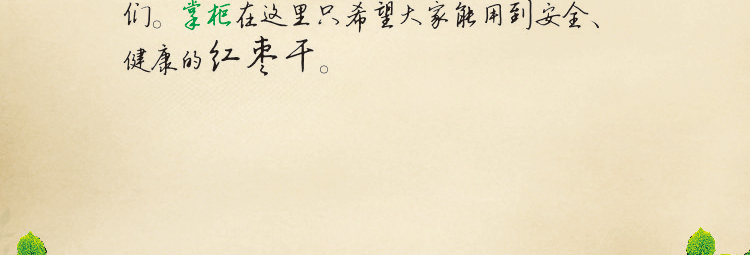 们。掌柜在这里只希望大家能用到安全、
健康的红枣干。